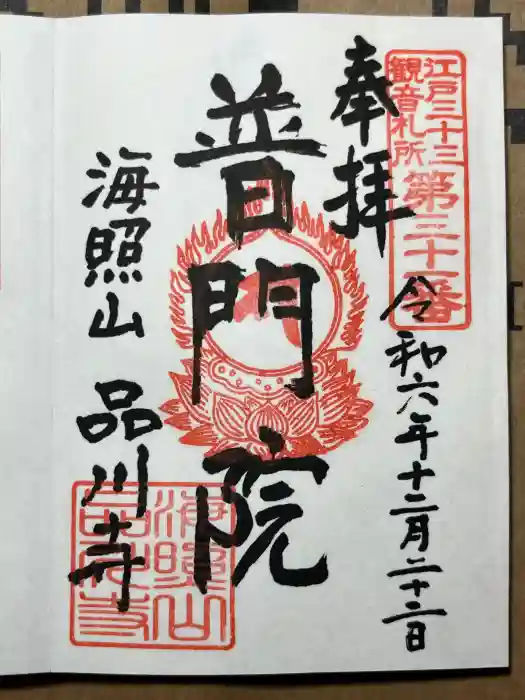 江戸三十三
観音札所
第三十一番
奉拝
令和六年十二月二十二日
普門院
海照山 品川寺
海照山
品川寺